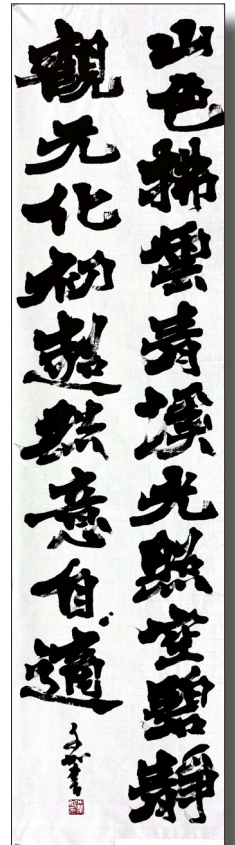 山色拂雲青溪光照空碧靜
觀元化初超然意自適
書